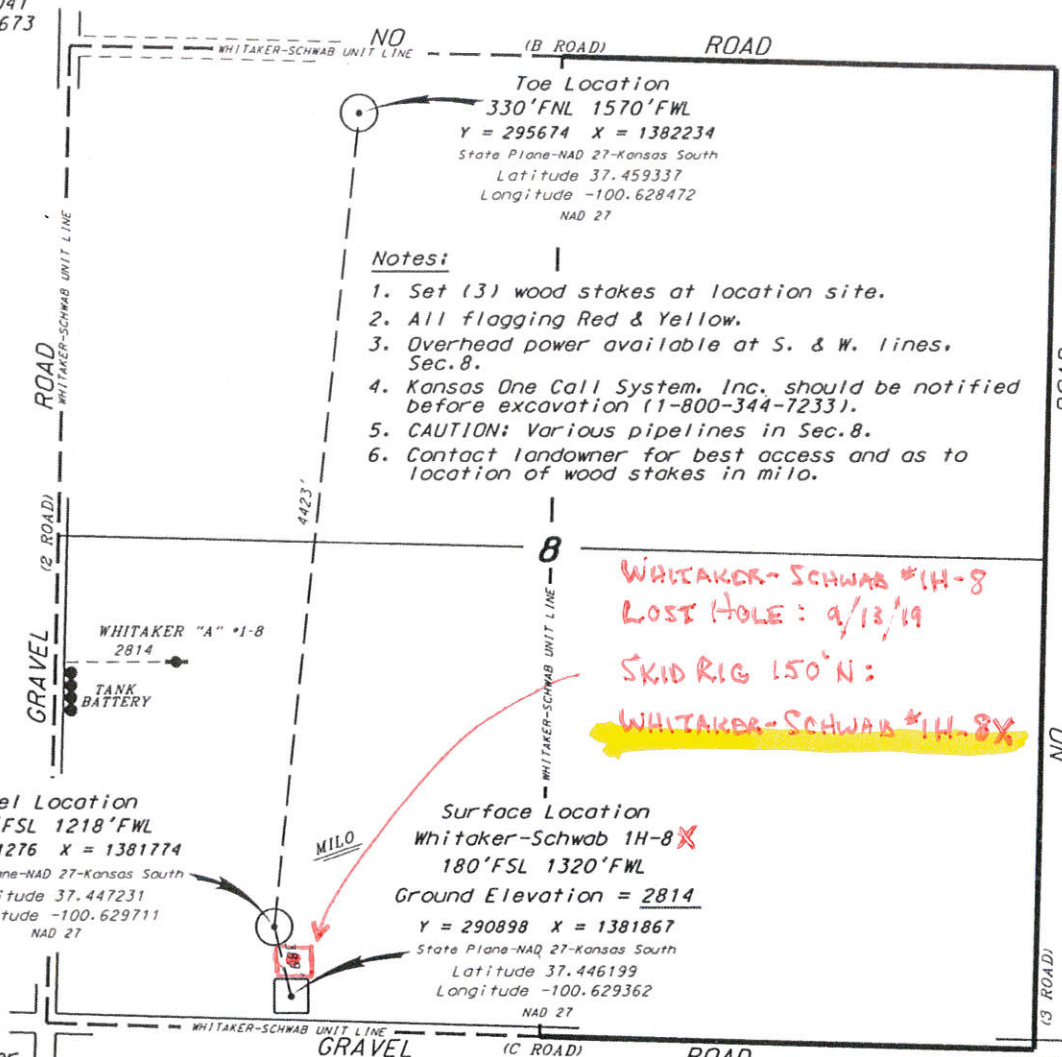 673
NO
(B ROAD)
ROAD
WHITAKER-SCHWAB UNIT LINE
Toe Location
330'FNL 1570'FWL
Y = 295674 X = 1382234
State Plane-NAD 27-Kansas South
Latitude 37.459337
Longitude -100.628472
NAD 27
Notes:
1. Set (3) wood stakes at location site.
2. All flagging Red & Yellow.
3. Overhead power available at S. & W. lines,
Sec.8.
4. Kansas One Call System, Inc. should be notified
before excavation (1-800-344-7233).
5. CAUTION: Various pipelines in Sec.8.
6. Contact landowner for best access and as to
location of wood stakes in milo.
WHITAKER-SCHWAB UNIT LINE
ROAD
(2 ROAD)
GRAVEL
4423'
8
WHITAKER-SCHWAB #1H-8
LOST HOLE: 9/13/19
SKID RIG 150'N:
WHITAKER-SCHWAB #1H-8X
WHITAKER "A" #1-8
2814
TANK
BATTERY
WHITAKER-SCHWAB UNIT LINE
NO
el Location
FSL 1218'FWL
1276 X = 1381774
ane-NAD 27-Kansas South
itude 37.447231
tude -100.629711
NAD 27
MILO
Surface Location
Whitaker-Schwab 1H-8X
180'FSL 1320'FWL
Ground Elevation = 2814
Y = 290898 X = 1381867
State Plane-NAD 27-Kansas South
Latitude 37.446199
Longitude -100.629362
NAD 27
(3 ROAD)
WHITAKER-SCHWAB UNIT LINE
GRAVEL
(C ROAD)
ROAD